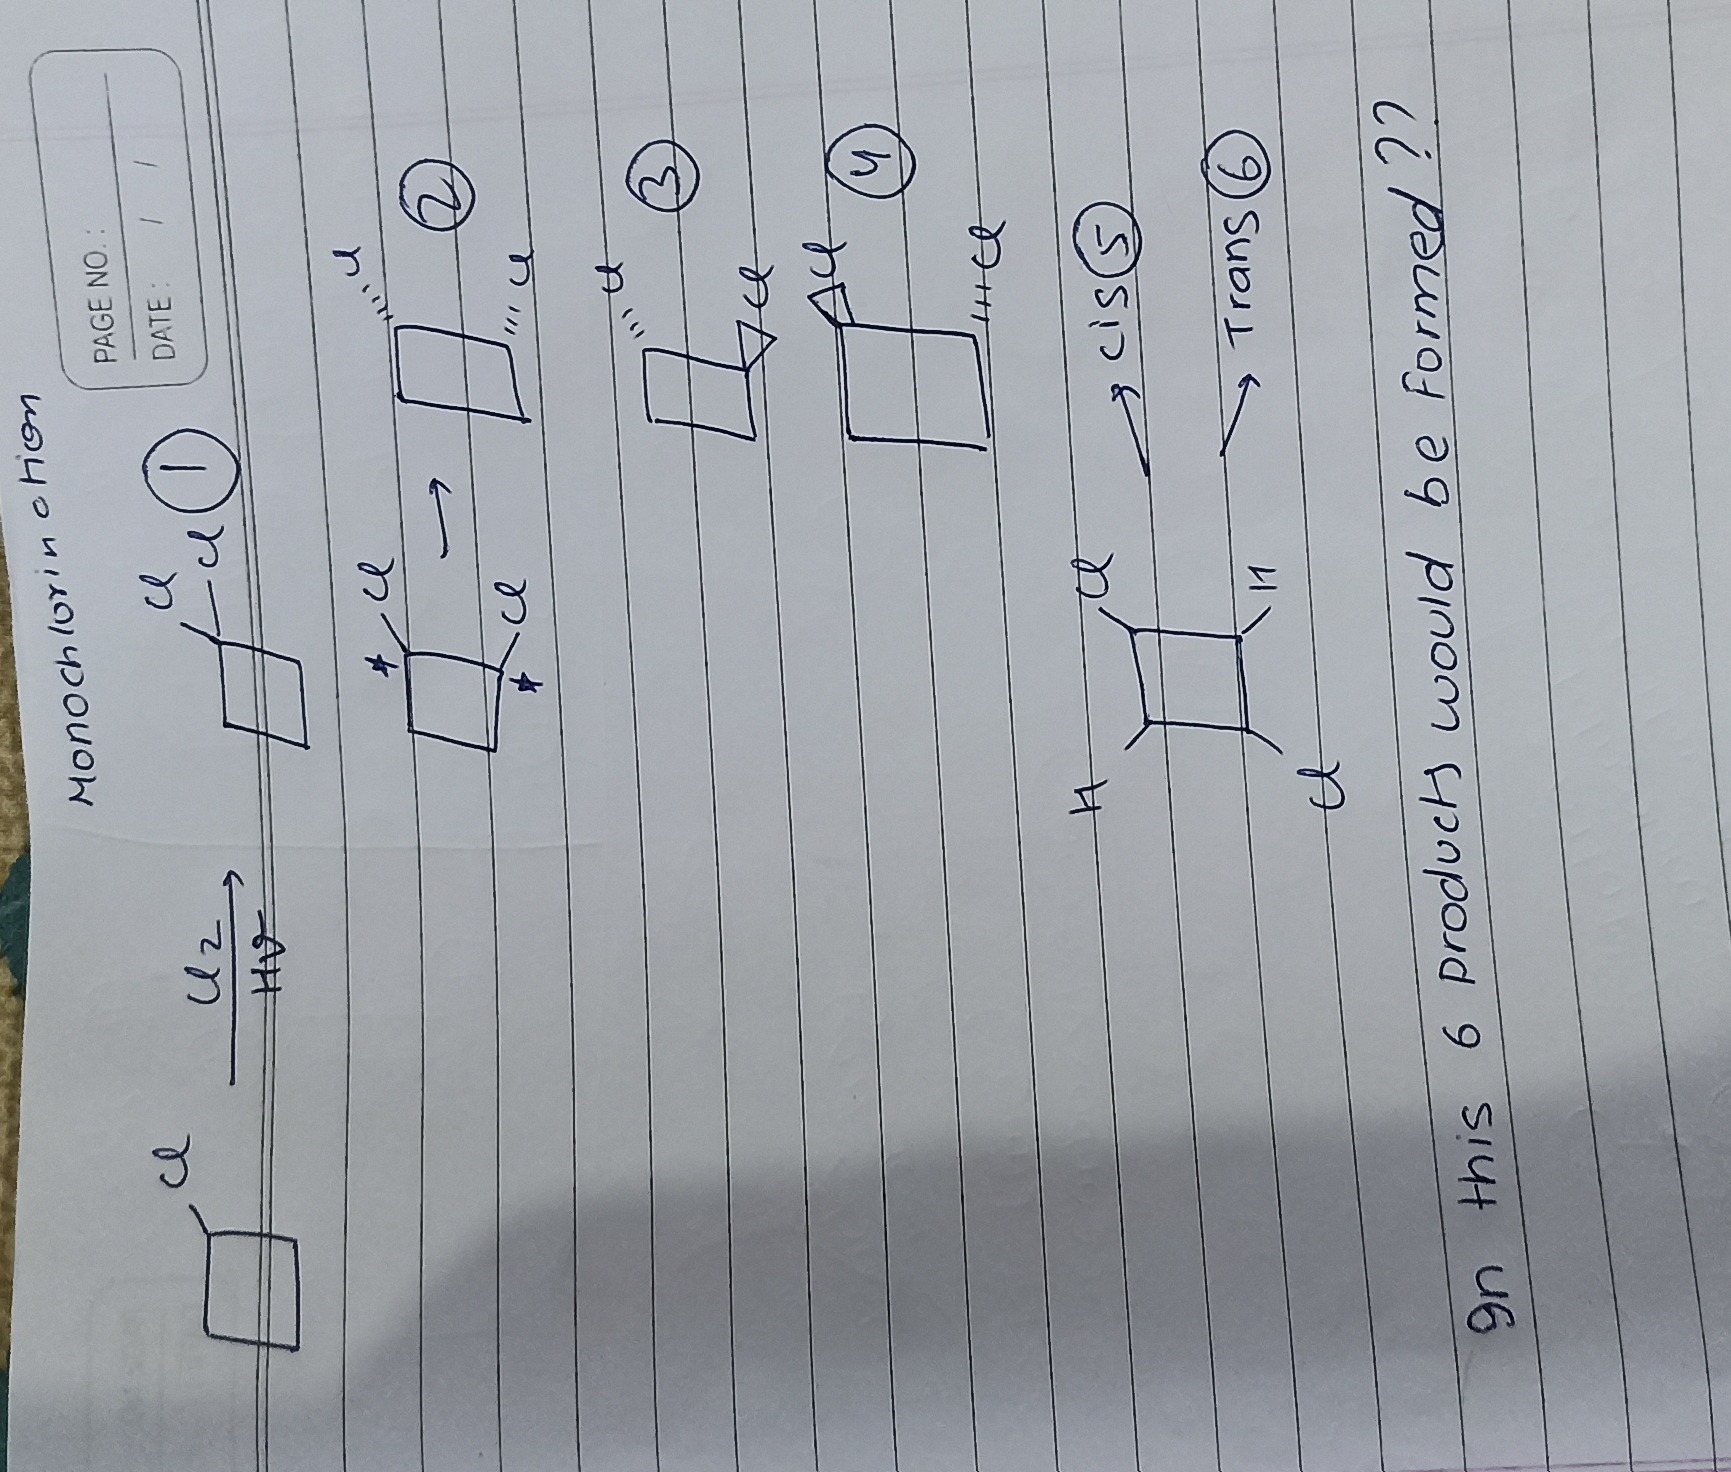 PAGE NO.:
DATE: / /
Monochlorination
Cl
Cl2
Hν
Cl
Cl
1
* Cl
* Cl
Cl
Cl
2
Cl
Cl
3
Cl
Cl
4
H
Cl
Cl
H
cis 5
Trans 6
gn this 6 products would be formed??